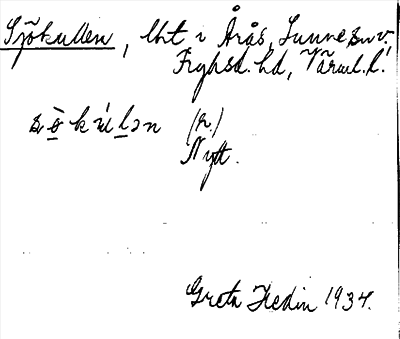 Sjökullen, lht i Årås, Sunne sn v.
Fryksd. hd, Värml. l.
(r.)
Nytt.
Greta Hedin 1934.